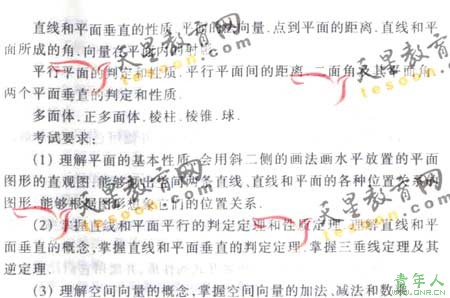 直线和平面垂直的性质.平面的法向量.点到平面的距离.直线和平
面所成的角.向量在平面内的射影.
平行平面的判定和性质.平行平面间的距离.二面角及其平面角.
两个平面垂直的判定和性质.
多面体.正多面体.棱柱.棱锥.球.
考试要求:
(1) 理解平面的基本性质,会用斜二侧的画法画水平放置的平面
图形的直观图.能够画出空间两条直线、直线和平面的各种位置关系的
图形,能够根据图形想象它们的位置关系.
(2) 掌握直线和平面平行的判定定理和性质定理.理解直线和平
面垂直的概念,掌握直线和平面垂直的判定定理.掌握三垂线定理及其
逆定理.
(3) 理解空间向量的概念,掌握空间向量的加法、减法和数乘
天星教育网
tesoon.com
天星教育网
tesoon.com
天星教育网
tesoon.com
天星教育网
tesoon.com
青年人